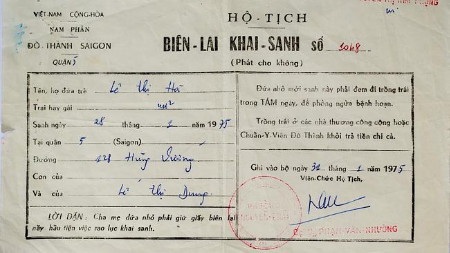 VIỆT-NAM CỘNG-HÒA
NAM PHẦN
ĐÔ-THÀNH SAIGON
QUẬN
HỘ-TỊCH
BIÊN-LAI KHAI-SANH SỐ 3068
(Phát cho không)
Tên, họ đứa trẻ Lê Thị Hà
Trai hay gái nữ
Sanh ngày 28 tháng 1 năm 1975
Tại quận 5 (Saigon)
Đường 128 Hùng Vương
Con của
Và của Lê Thị Dung
LỜI DẶN: Cha mẹ đứa nhỏ phải giữ giấy biên lai
này hầu tiện việc sao lục khai sanh.
Đứa nhỏ mới sanh này phải đem đi trồng trái
trong TÁM ngày, để phòng ngừa bệnh hoạn.
Trồng trái ở các nhà thương công cộng hoặc
Chuẩn-Y-Viện Đô Thành khỏi trả tiền chi cả.
Ghi vào bộ ngày 31 tháng 1 năm 1975
Viên-Chức Hộ Tịch,